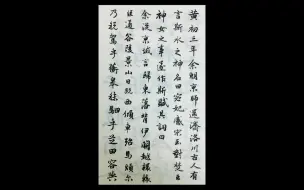 黄初三年余朝京師還濟洛川古人有
言斯水之神名曰宓妃感宋玉對楚王
神女之事遂作斯賦其詞曰
余從京域言歸東藩背伊闕越轘轅
經通谷陵景山日既西傾車殆馬煩爾
乃税駕乎蘅皋秣駟乎芝田容與